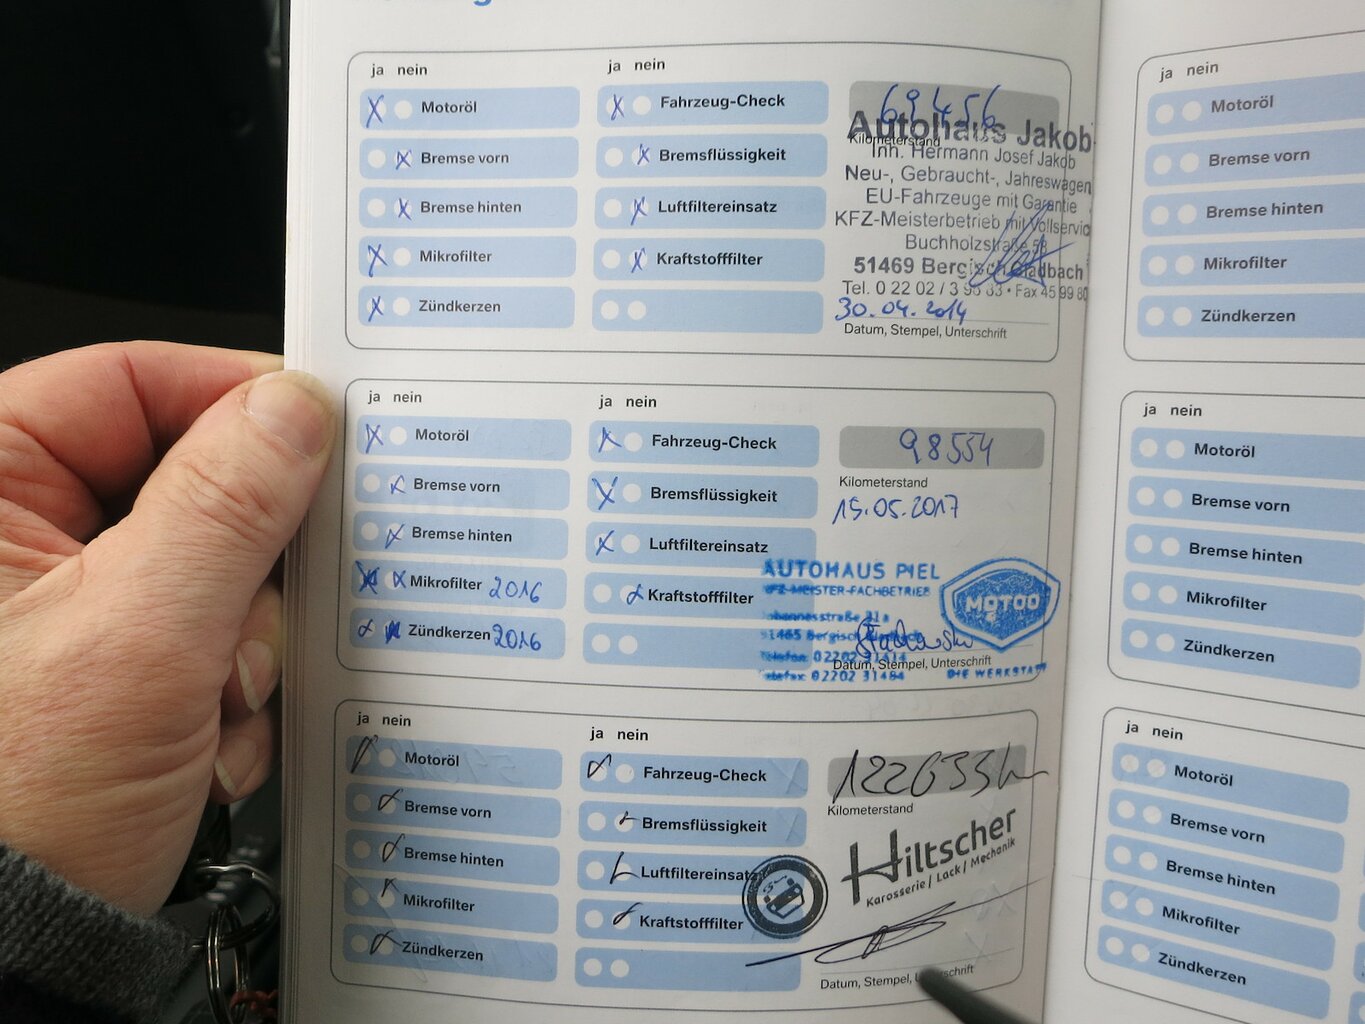 ja nein
Motoröl
Bremse vorn
Bremse hinten
Mikrofilter
Zündkerzen
ja nein
Fahrzeug-Check
Bremsflüssigkeit
Luftfiltereinsatz
Kraftstofffilter
69456
Kilometerstand
Autohaus Jakob
Inh. Hermann Josef Jakob
Neu-, Gebraucht-, Jahreswagen
EU-Fahrzeuge mit Garantie
KFZ-Meisterbetrieb mit Vollservic
Buchholzstraße 58
51469 Bergisch Gladbach
Tel. 0 22 02 / 3 95 33 • Fax 45 99 80
30.04.2014
Datum, Stempel, Unterschrift
ja nein
Motoröl
Bremse vorn
Bremse hinten
Mikrofilter 2016
Zündkerzen 2016
ja nein
Fahrzeug-Check
Bremsflüssigkeit
Luftfiltereinsatz
Kraftstofffilter
98554
Kilometerstand
15.05.2017
AUTOHAUS PIEL
KFZ-MEISTER-FACHBETRIEB
Johannesstraße 31a
51465 Bergisch
Telefon 02202 31414
Telefax 02202 31484
MOTOO
DIE WERKSTATT
Datum, Stempel, Unterschrift
ja nein
Motoröl
Bremse vorn
Bremse hinten
Mikrofilter
Zündkerzen
ja nein
Fahrzeug-Check
Bremsflüssigkeit
Luftfiltereinsatz
Kraftstofffilter
Kilometerstand
Hiltscher
Karosserie / Lack / Mechanik
Datum, Stempel, Unterschrift
ja nein
Motoröl
Bremse vorn
Bremse hinten
Mikrofilter
Zündkerzen
ja nein
Motoröl
Bremse vorn
Bremse hinten
Mikrofilter
Zündkerzen
ja nein
Motoröl
Bremse vorn
Bremse hinten
Mikrofilter
Zündkerzen